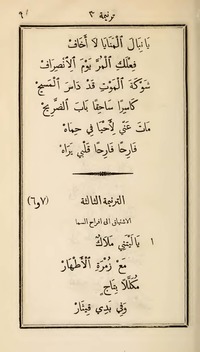 ترنيمة ٣
يَا نِبَالَ ٱلْمَنَايَا لَا أَخَافْ
فِعْلَكِ ٱلْمُرَّ يَوْمَ ٱلِٱنْصِرَافْ
شَوْكَةَ ٱلْمَوْتِ قَدْ دَاسَ ٱلْمَسِيحْ
كَاسِرًا سَاحِقًا بَابَ ٱلضَّرِيحْ
مَاتَ عَنِّي لِأَحْيَا فِي حِمَاهْ
فَارِحًا فَارِحًا قَلْبِي يَرَاهْ
الترنيمة الثالثة (٧و٦)
الاشتياق الى افراح السما
١ يَا لَيْتَنِي مَلَاكٌ
مَعْ زُمْرَةِ ٱلْأَطْهَارْ
مُكَلَّلًا بِتَاجٍ
وَفِي يَدِي قِيثَارْ